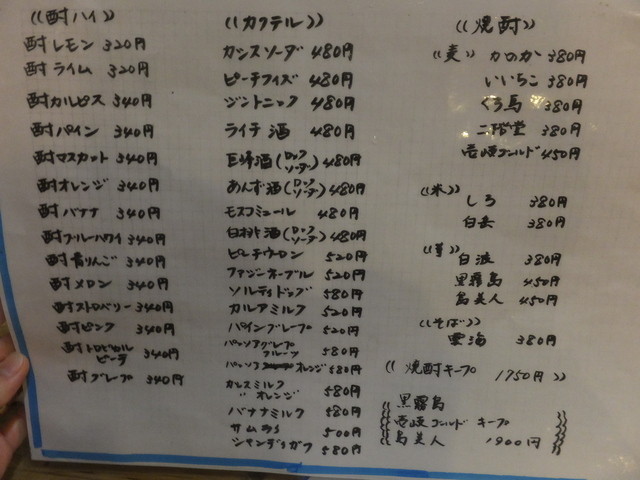 ((酎ハイ))
酎レモン 320円
酎ライム 320円
酎カルピス 340円
酎パイン 340円
酎マスカット 340円
酎オレンジ 340円
酎バナナ 340円
酎ブルーハワイ 340円
酎青りんご 340円
酎メロン 340円
酎ストロベリー 340円
酎ピンク 340円
酎トロピカルピーチ 340円
酎グレープ 340円
((カクテル))
カシスソーダ 480円
ピーチフィズ 480円
ジントニック 480円
ライチ酒 480円
巨峰酒(ロックソーダ) 480円
あんず酒(ロックソーダ) 480円
モスコミュール 480円
白桃酒(ロックソーダ) 480円
ピーチウーロン 520円
ファジーネーブル 520円
ソルティドッグ 580円
カルアミルク 520円
パイングレープ 520円
パッソアグレープフルーツ 580円
パッソアオレンジ 580円
カシスミルク
〃 オレンジ 580円
バナナミルク 580円
サムライ 500円
シャンディガフ 580円
((焼酎))
((麦)) かのか 380円
いいちこ 380円
くろ馬 380円
二階堂 380円
壱岐ゴールド 450円
((米))
しろ 380円
白岳 380円
((芋)) 白波 380円
黒霧島 450円
島美人 450円
((そば))
雲海 380円
((焼酎キープ 1750円))
黒霧島
壱岐ゴールド キープ
島美人 1900円